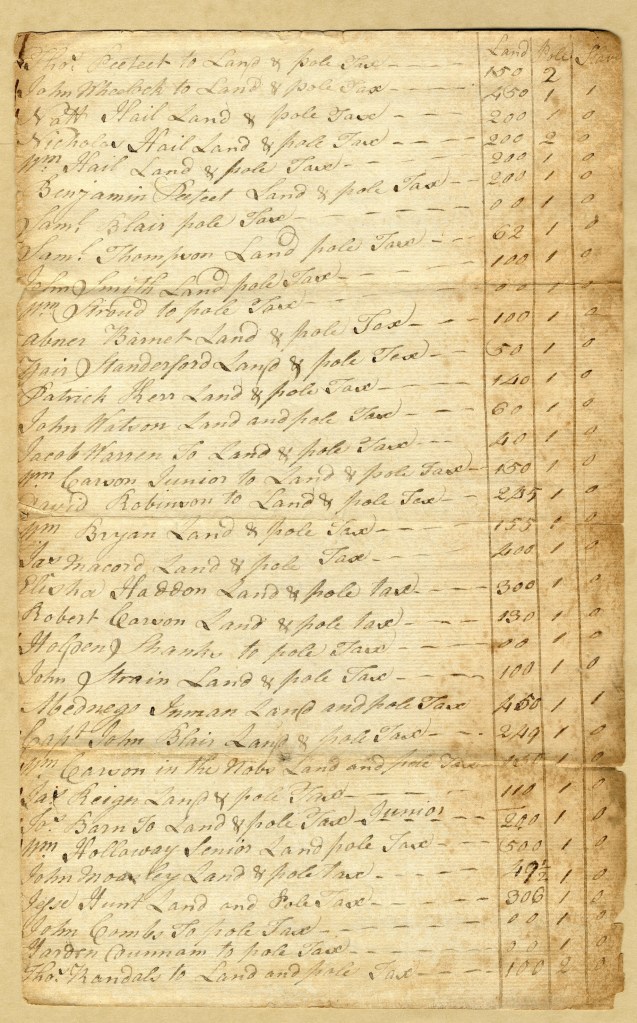 Land Pole Slave
Thos. Peeteet to Land & pole Tax - - - - 150 2
John Wheelock to Land & pole Tax - - - - 450 1 1
Natt Hail Land & pole Tax - - - 200 1 0
Nicholas Hail Land & pole Tax - - - 200 2 0
Wm Hail Land & pole Tax - - - 200 1 0
Benjamin Peteet Land & pole Tax - - 200 1 0
Saml. Blair pole Tax - - - - - 00 1 0
Saml. Thompson Land pole Tax - - 62 1 0
John Smith Land pole Tax - - - - 100 1 0
Wm Stroud to pole Tax - - - - 00 1 0
Abner Barnet Land & pole Tax - - 100 1 0
Standerford Land & pole Tax - - 50 1 0
Patrick Kerr Land & pole Tax - - - 140 1 0
John Watson Land and pole Tax - - - 60 1 0
Jacob Warren To Land & pole Tax - - - 40 1 0
Wm Carson Junior to Land & pole Tax - - 150 1 0
David Robinson to Land & pole Tax - - 245 1 0
Wm Bryan Land & pole Tax - - - 155 1 0
Jas Macord Land & pole Tax - - - - 400 1 0
Elisha Haddon Land & pole tax - - - 300 1 0
Robert Carson Land & pole tax - - - - 130 1 0
Holden Shanks to pole Tax - - - - 00 1 0
John Strain Land & pole Tax - - - - 100 1 0
Abednego Inman Land and pole Tax 450 1 1
Capt John Blair Land & pole Tax - - - 249 1 0
Wm Carson in the Nobs Land and pole Tax 1 0
Jas Reiger Land & pole Tax - - - - 110 1 0
Jos. Barn To Land & pole Tax Junior - - 200 1 0
Wm Holloway Senior Land pole Tax - - 500 1 0
John Moasley Land & pole tax - - - 49½ 1 0
Jesse Hunt Land and Pole Tax - - - - 306 1 0
John Combs To pole Tax - - - - 00 1 0
Yarden Counnam to pole Tax - - - - 00 1 0
Thos. Randals to Land and pole Tax - - - - 100 2 0